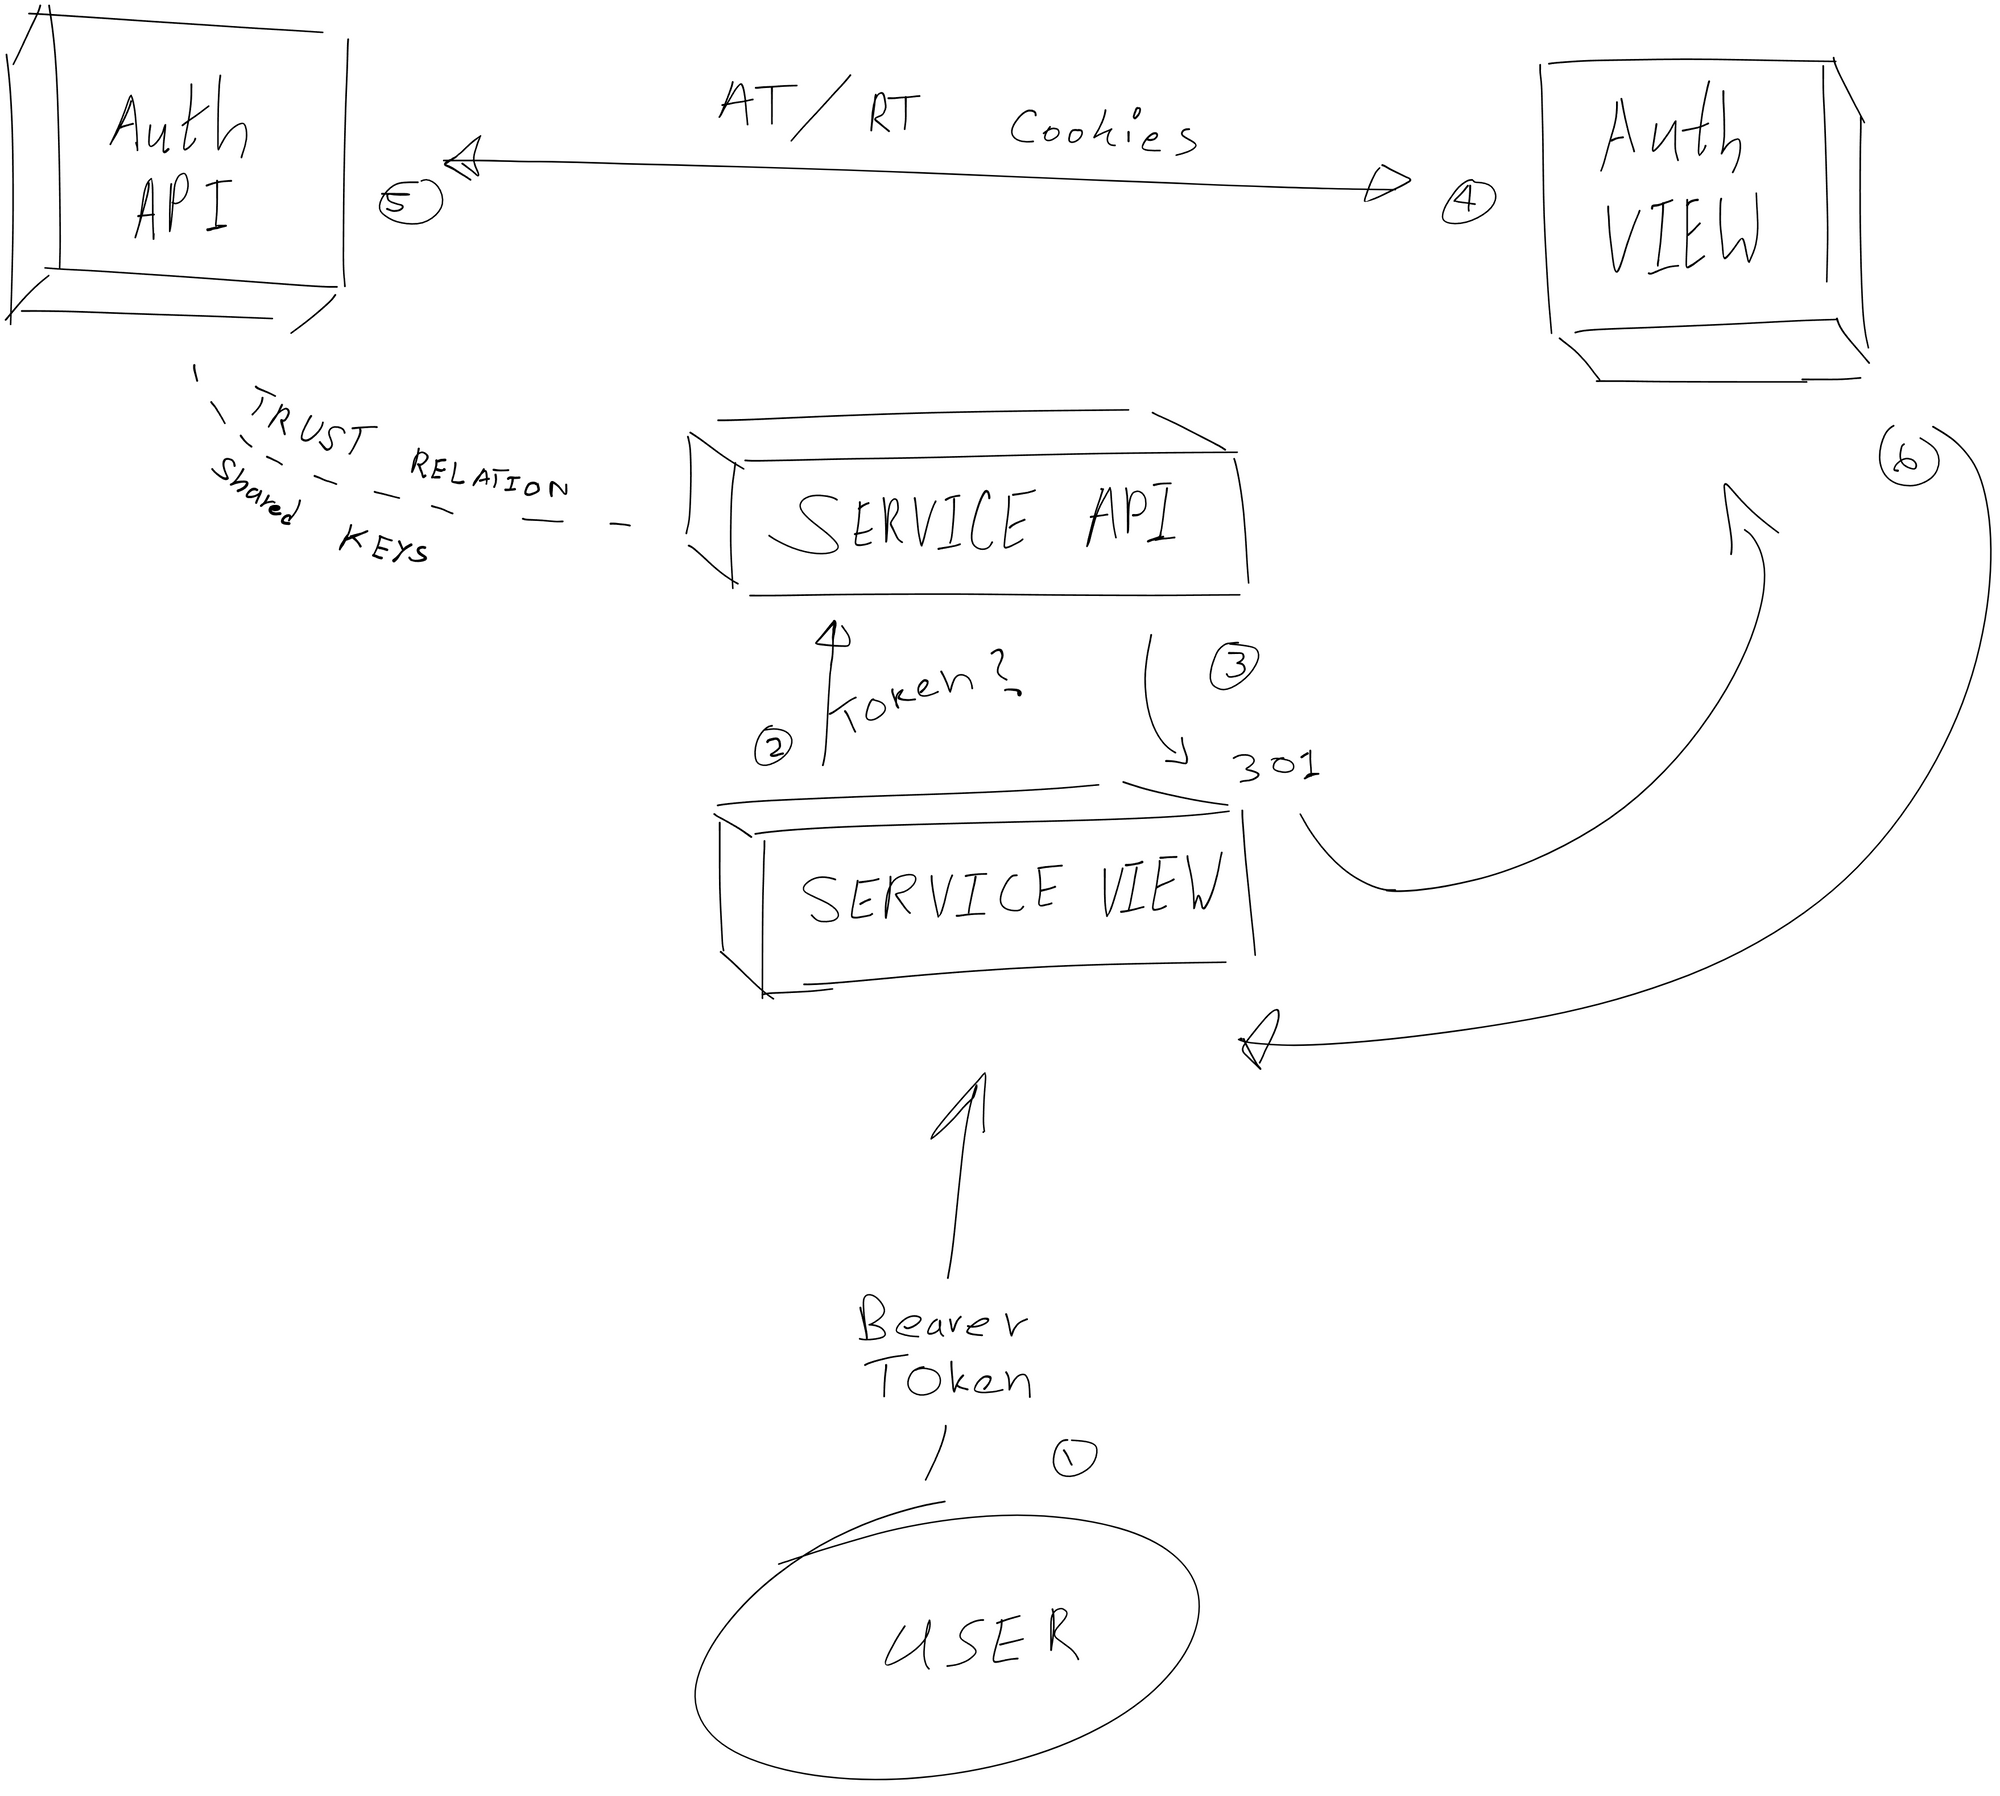 Auth
API
AT/RT Cookies
Auth
VIEW
5
4
TRUST RELATION
Shared KEYS
SERVICE API
6
Token?
3
2
301
SERVICE VIEW
Bearer
Token
1
USER